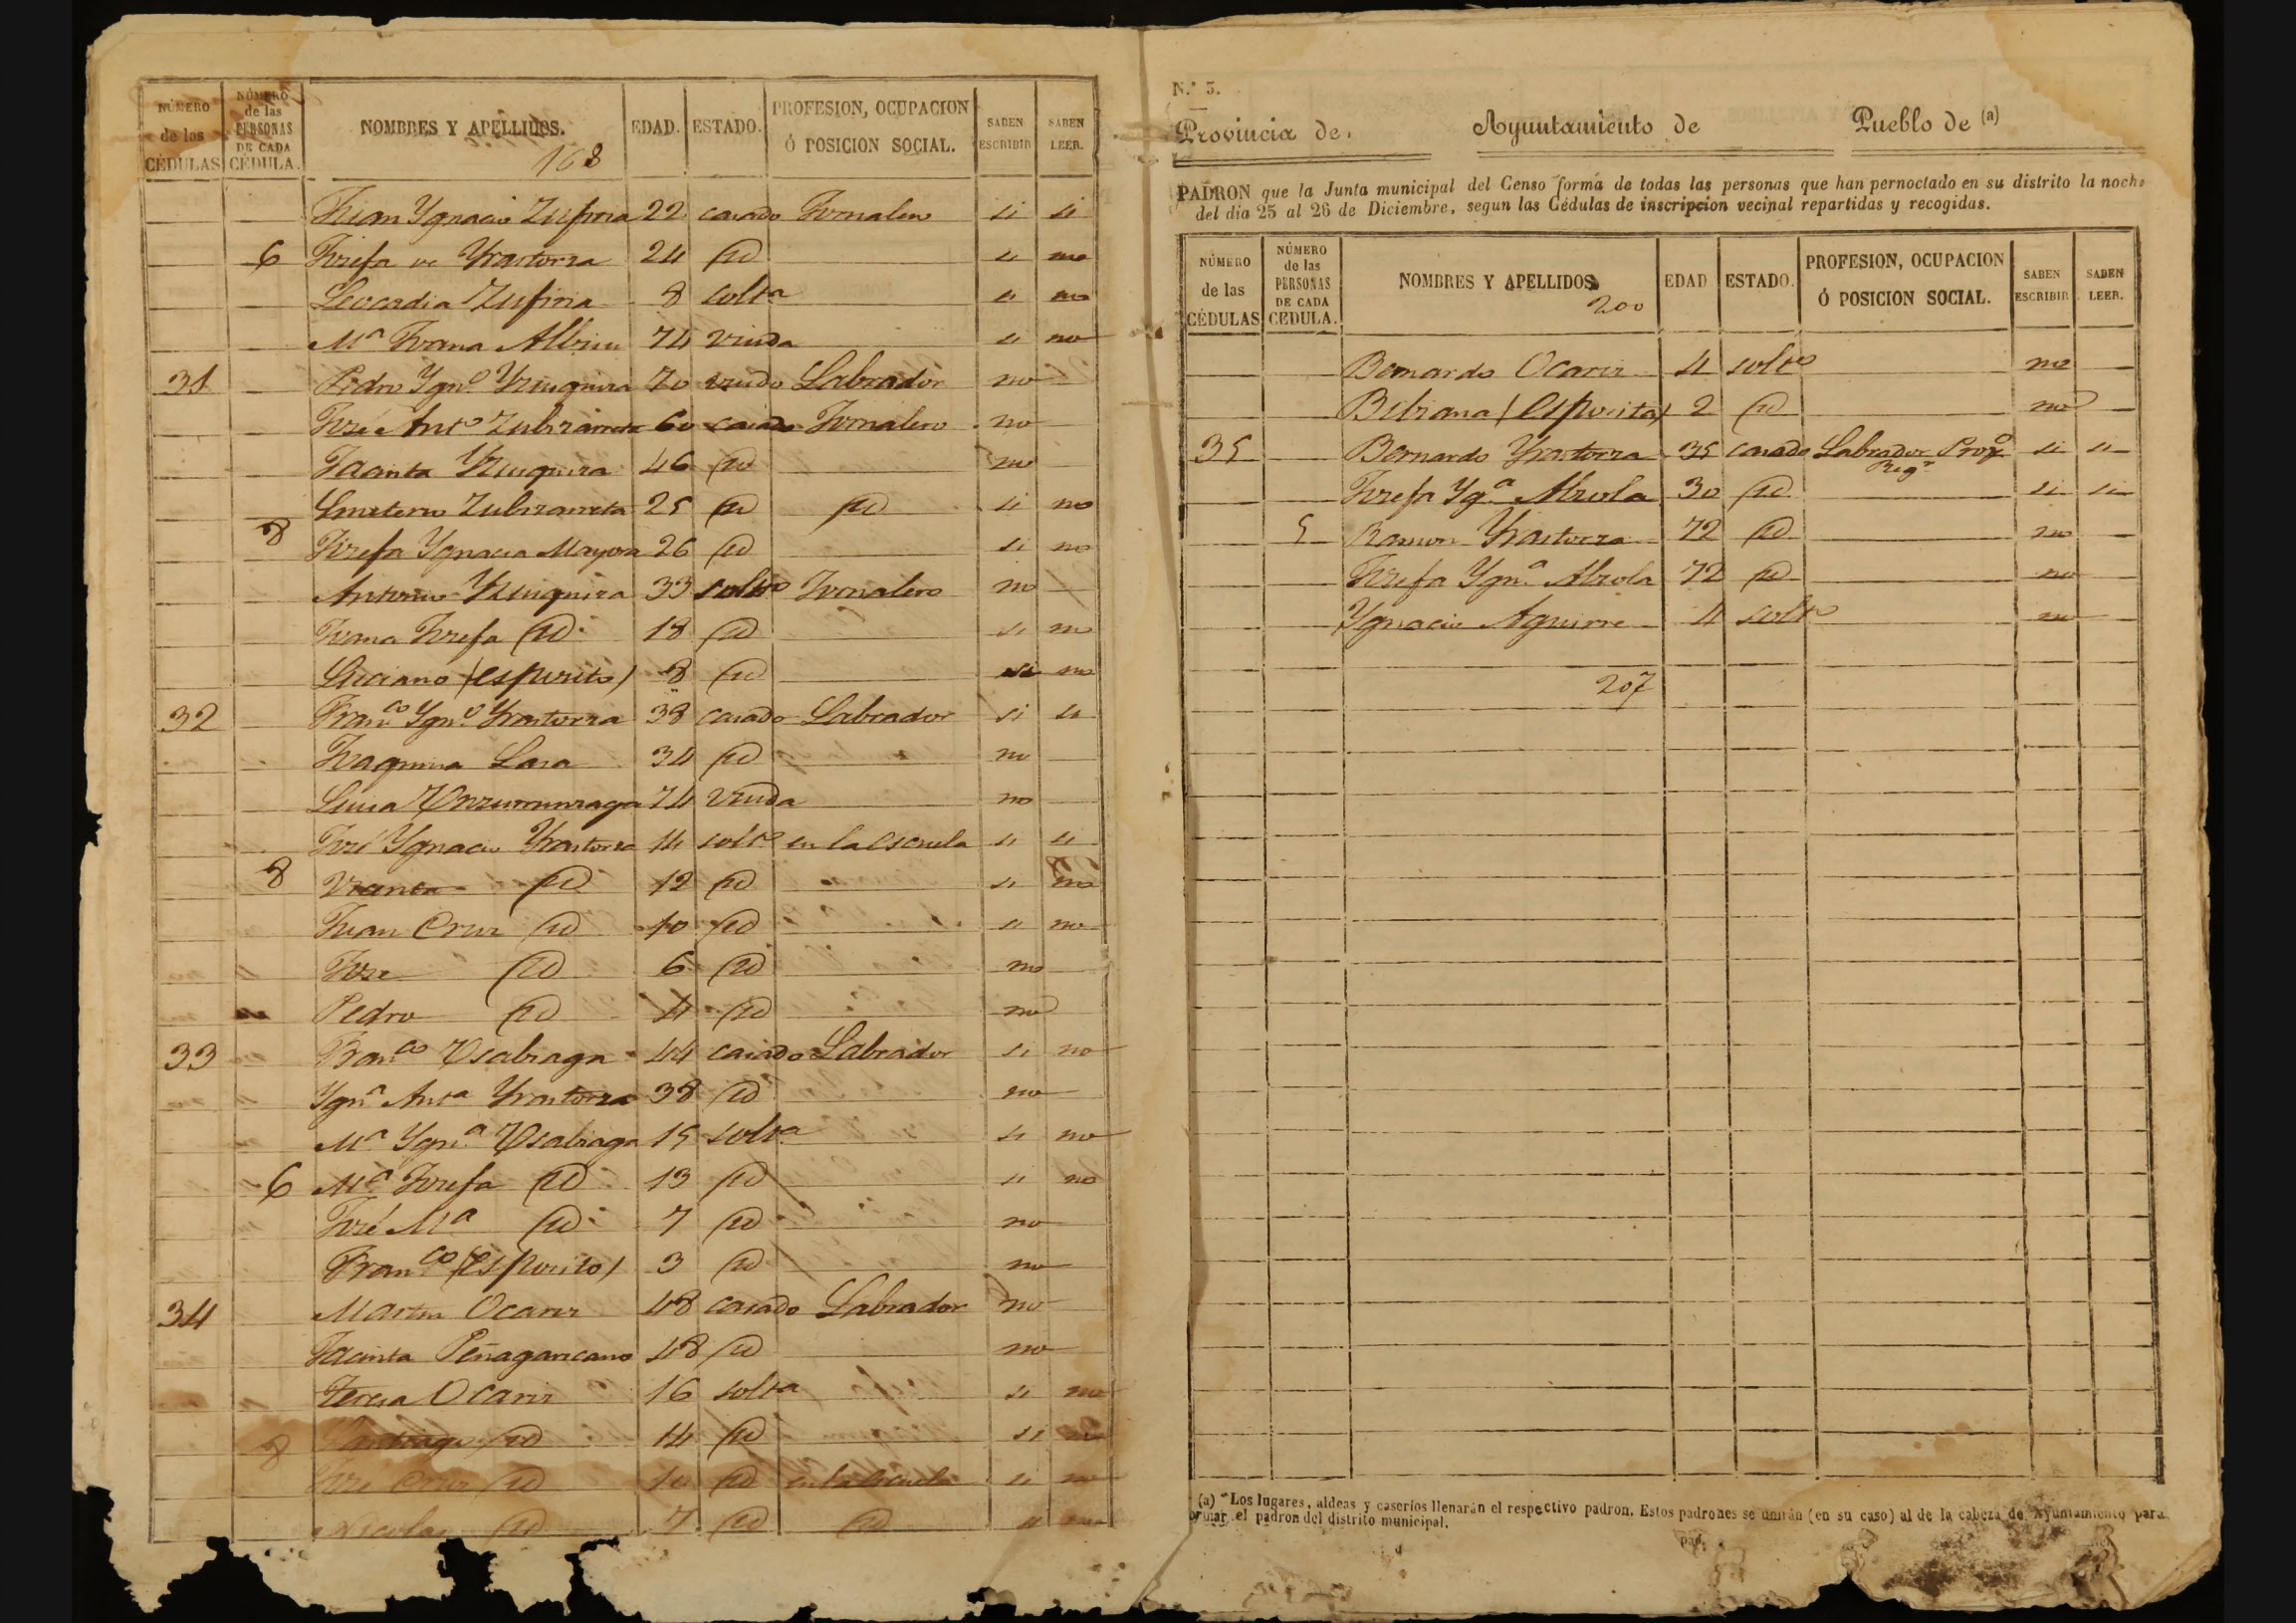 NÚMERO de las CÉDULAS NÚMERO de las PERSONAS DE CADA CÉDULA. NOMBRES Y APELLIDOS. EDAD. ESTADO. PROFESION, OCUPACION Ó POSICION SOCIAL. SABEN ESCRIBIR SABEN LEER.
168
Juan Ygnacio Zufiria 22 casado Jornalero si si
6 Josefa de Yrastorza 24 id si no
Leocadia Zufiria 8 solta si no
Ma Juana Albisu 74 viuda si no
31 Pedro Ygno Yzuquiza 70 viudo Labrador no
José Anto Zubizarreta 60 casado Jornalero no
Jacinta Yzuquiza 46 id no
Emeterio Zubizarreta 25 id id si no
8 Josefa Ygnacia Mayora 26 id si no
Antonio Yzuquiza 33 solto Jornalero no
Juana Josefa id 18 id si no
Luciano (esposito) 8 id si no
32 Franco Ygno Yrastorza 38 casado Labrador si si
Joaquina Lasa 34 id no
Luisa Unzurrunzaga 74 viuda no
José Ygnacio Yrastorza 14 solto en la escuela si si
8 id 12 id si no
Juan Cruz id 10 id si no
Jose id 6 id no
Pedro id 4 id no
33 Franco Usabiaga 44 casado Labrador si no
Ygna Anta Yrastorza 38 id no
Ma Ygna Usabiaga 15 solta si no
6 Ma Josefa id 13 id si no
José Ma id 7 id no
Franco (esposito) 3 id no
34 Martin Ocariz 48 casado Labrador no
Jacinta Peñagaricano 48 id no
Teresa Ocariz 16 solta si no
8 Santiago id 14 id si no
José Cruz id 10 id en la escuela si no
Nicolas id 7 id id si no
N.º 3.
Provincia de Ayuntamiento de Pueblo de (a)
PADRON que la Junta municipal del Censo forma de todas las personas que han pernoctado en su distrito la noche
del dia 25 al 26 de Diciembre, segun las Cédulas de inscripcion vecinal repartidas y recogidas.
NÚMERO de las CÉDULAS NÚMERO de las PERSONAS DE CADA CEDULA. NOMBRES Y APELLIDOS EDAD ESTADO. PROFESION, OCUPACION Ó POSICION SOCIAL. SABEN ESCRIBIR SABEN LEER.
200
Bernardo Ocariz 4 solto no
Bibiana (esposita) 2 id no
35 Bernardo Yrastorza 35 casado Labrador Propo si si
Regr
Josefa Yga Alzola 30 id si si
5 Ramon Yrastorza 72 id no
Josefa Ygna Alzola 72 id no
Ygnacio Aguirre 4 solto no
207
(a) Los lugares, aldeas y caseríos llenarán el respectivo padron. Estos padrones se unirán (en su caso) al de la cabeza de Ayuntamiento para
formar el padron del distrito municipal.